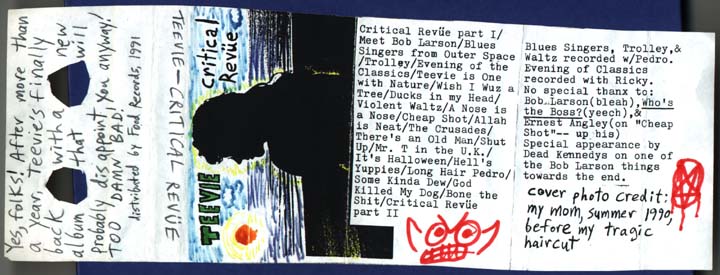 Yes, folks! After more than
a year, Teevie's finally
back with a new
album that will
Probably disappoint you anyway!
TOO DAMN BAD!
distributed by Records, 1991
TEEVIE—CRITICAL REVÜE
Critical
Revüe
TEEVIE
Critical Revüe part I/
Meet Bob Larson/Blues
Singers from Outer Space
/Trolley/Evening of the
Classics/Teevie is One
with Nature/Wish I Wuz a
Tree/Ducks in my Head/
Violent Waltz/A Nose is
a Nose/Cheap Shot/Allah
is Neat/The Crusades/
There's an Old Man/Shut
Up/Mr. T in the U.K./
It's Halloween/Hell's
Yuppies/Long Hair Pedro/
Some Kinda Dew/God
Killed My Dog/Bone the
Shit/Critical Revüe
part II
Blues Singers, Trolley,&
Waltz recorded w/Pedro.
Evening of Classics
recorded with Ricky.
No special thanx to:
Bob Larson(bleah), Who's
the Boss?(yeech),&
Ernest Angley(on "Cheap
Shot"-- up his)
Special appearance by
Dead Kemnedys on one of
the Bob Larson things
towards the end.
cover photo credit:
my mom, summer 1990,
before my tragic
haircut